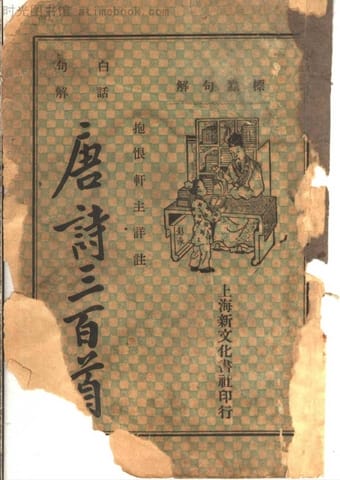 时光图书馆 - atimebook.com
標點句解
白話
句解
上海新文化書社印行
抱恨軒主詳註
唐詩三百首